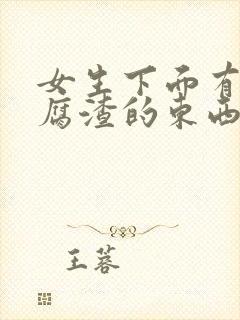 女生下面有
腐渣的东西
王蓉